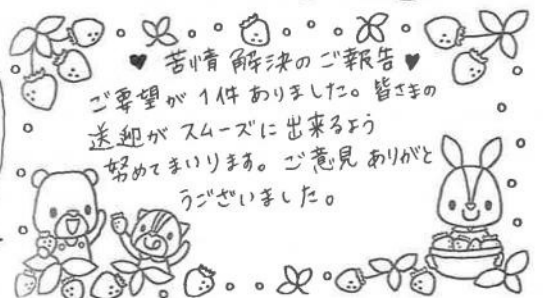 ♥ 苦情 解決の ご報告 ♥
ご要望が 1件 ありました。皆さまの
送迎が スムーズに 出来るよう
努めてまいります。ご意見 ありがと
うございました。